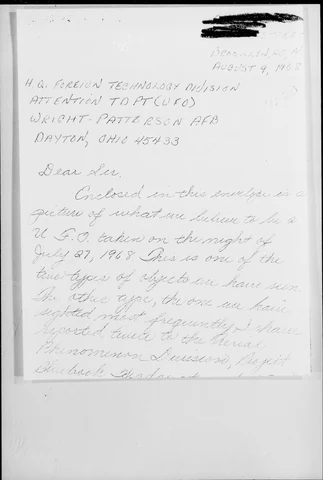 AUGUST 9, 1968
H.Q. FOREIGN TECHNOLOGY DIVISION
ATTENTION TDPT (UFO)
WRIGHT-PATTERSON AFB
DAYTON, OHIO 45433
Dear Sir,
Enclosed in this envelope is a
picture of what we believe to be a
U.F.O. taken on the night of
July 27, 1968 This is one of the
two types of objects we have seen
The other type, the one we have
sighted most frequently I have
reported twice to the Aerial
Phenomenon Division, Project
Bluebook